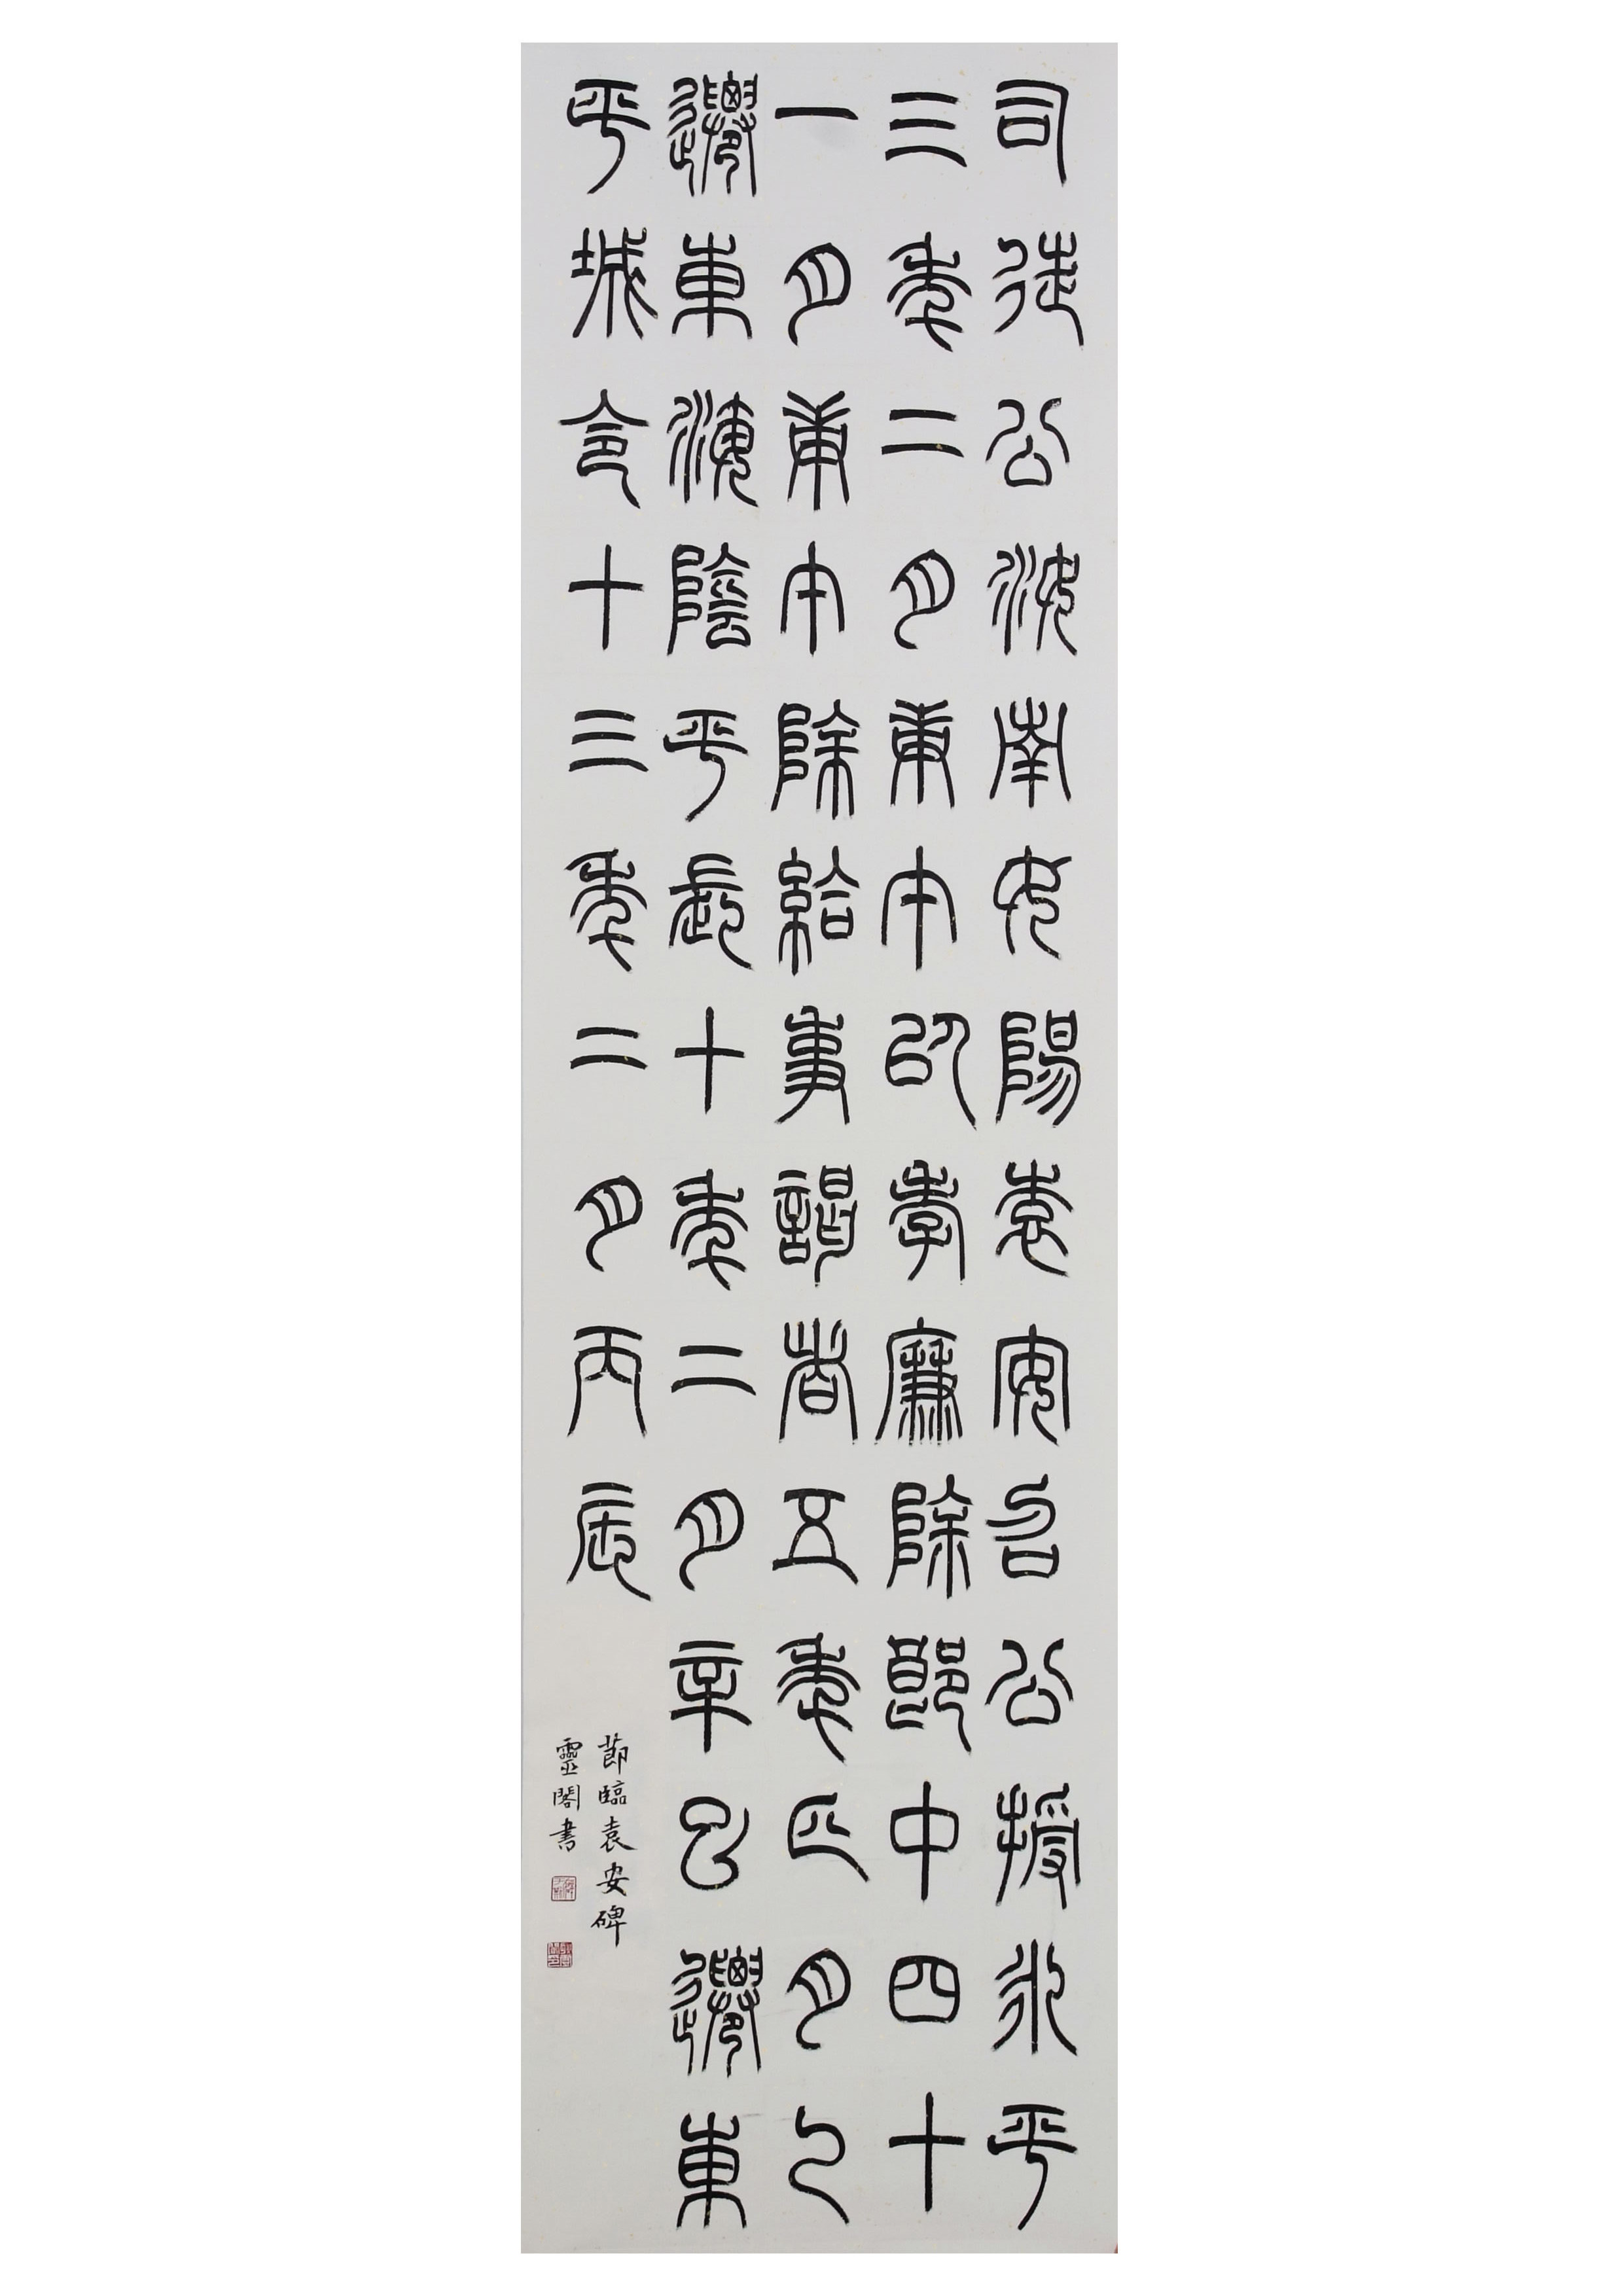 司徒公汝南女陽袁安召公授永平
三年二月庚午以孝廉除郎中四十
一月庚午除給事謁者五年正月乙
遷東海陰平長十年二月辛巳遷東
平城令十三年二月丙辰
節臨袁安碑
靈閣書